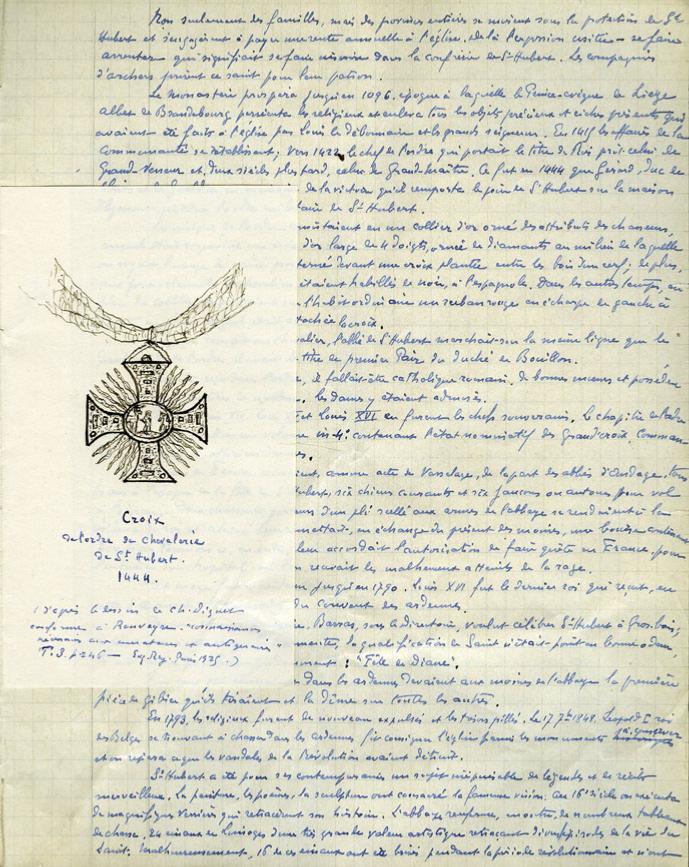 Non seulement des familles, mais des provinces entières se mirent sous la protection de St
Hubert et s'engagèrent à payer une rente annuelle à l'église, de là l'expression usitée - se faire
arrenter qui signifiait se faire inscrire dans la confrérie de St-Hubert. Les compagnies
d'archers prirent ce saint pour leur patron.
Le monastère prospéra jusqu'en 1096, époque à laquelle le Prince-évêque de Liège
albert de Brandebourg persécuta les religieux et enleva tous les objets précieux et riches présents qui
avaient été faits à l'église par Louis le Débonnaire et les grands seigneurs. En 1415 les affaires de la
Communauté se rétablissent; Vers 1422, le chef de l'ordre qui portait le titre de Roi prit celui de
Grand-Veneur et, deux siècles plus tard, celui de Grand-maître. Ce fut en 1444 que Gérard, duc de
de la victoire qu'il remporta le jour de St Hubert sur la maison
de St-Hubert.
en un collier d'or orné des attributs des chasseurs,
d'or large de 4 doigts, ornée de diamants au milieu de laquelle
devant une croix plantée entre les bois d'un cerf; de plus,
étaient habillés de noir, à l'espagnole. Dans les autres temps, on
l'habit ordinaire un ruban rouge en écharpe de gauche à
la croix.
l'abbé de St Hubert marchait sur la même ligne que le
titre de premier Pair du duché de Bouillon.
il fallait être catholique romain, de bonnes mœurs et posséder
les dames y étaient admises.
et Louis XVI en furent les chefs souverains. Le chapitre de l'ordre
in-4° contenant l'état nominatif des Grand'croix, comman-
comme acte de vasselage, de la part des abbés d'Ardage, tous
six chiens courants et six faucons ou autours pour vol
d'un pli scellé aux armes de l'abbaye se rendaient à la
en échange du présent des moines, une bourse contenant
leur accordait l'autorisation de faire quête en France, pour
recevait les malheureux atteints de la rage.
jusqu'en 1790. Louis XVI fut le dernier roi qui reçut, en
du couvent des ardennes.
Barras, sous le directoire, voulut célébrer St-Hubert à Gros-bois,
la qualification de Saint n'était point en bonne odeur,
: "Fête de Diane".
dans les ardennes, devaient aux moines de l'abbaye la première
pièce de gibier qu'ils tiraient et la dîme sur toutes les autres.
En 1793, les religieux furent de nouveau expulsés et les trésors pillés. Le 17 7bre 1848, Léopold I roi
des Belges se trouvant à chasser dans les ardennes fit consigner l'église parmi les monuments à conserver
et on répara ce que les vandales de la Révolution avaient détruit.
St Hubert a été pour ses contemporains un sujet inépuisable de légendes et de récits
merveilleux. La peinture, les poèmes, la sculpture ont consacré la fameuse vision. Au 16e siècle on exécuta
de magnifiques verrières qui retracèrent son histoire. L'abbaye renferme, en outre, de nombreux tableaux
de chasse, 24 émaux de Limoges d'une très grande valeur artistique retraçant divers épisodes de la vie du
Saint. Malheureusement, 16 de ces émaux ont été brisés pendant la période révolutionnaire et n'ont
Croix
de l'ordre de chevalerie
de St Hubert.
1444.
(d'après le dessin de Ch. Diguet
conforme à Rouveyre - "connaissances
nécessaires aux amateurs et antiquaires"
T. 3. p 246 -